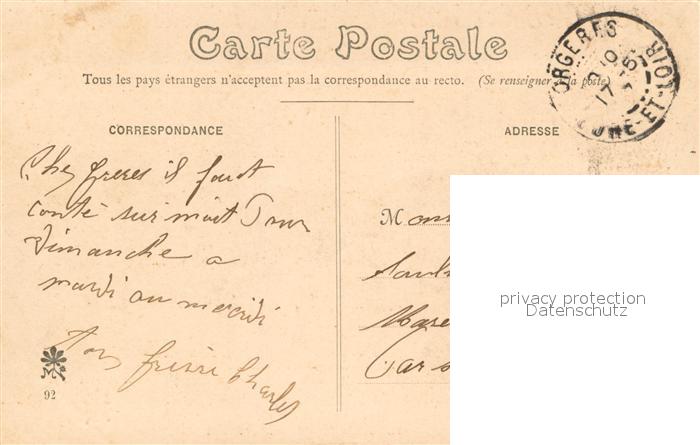 Carte Postale
Tous les pays étrangers n'acceptent pas la correspondance au recto. (Se renseigner à la poste)
ORGERES
EURE-ET-LOIR
CORRESPONDANCE
ADRESSE
Cher freres il faut
conté sur moit
Dimanche a
mardi ou mercrdi
Ton frère Charles
M
privacy protection
Datenschutz
92